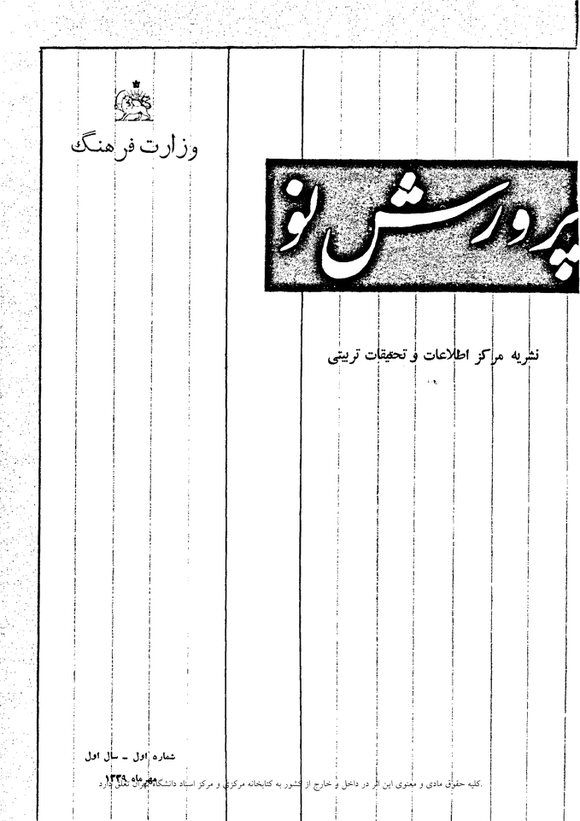 وزارت فرهنگ
پرورش نو
نشریه مرکز اطلاعات و تحقیقات تربیتی
شماره اول - سال اول
مهرماه ۱۳۳۹
کلیه حقوق مادی و معنوی این اثر در داخل و خارج از کشور به کتابخانه مرکزی و مرکز اسناد دانشگاه تهران تعلق دارد.